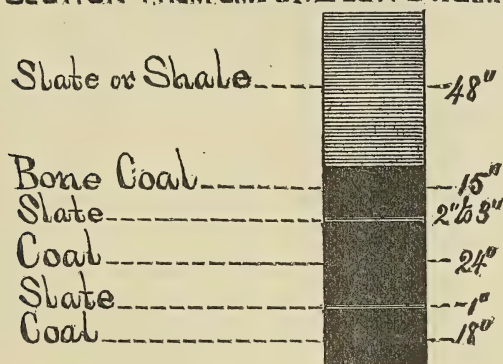 Slate or Shale 48"
Bone Coal 15"
Slate 2" to 3"
Coal 24"
Slate 1"
Coal 18"